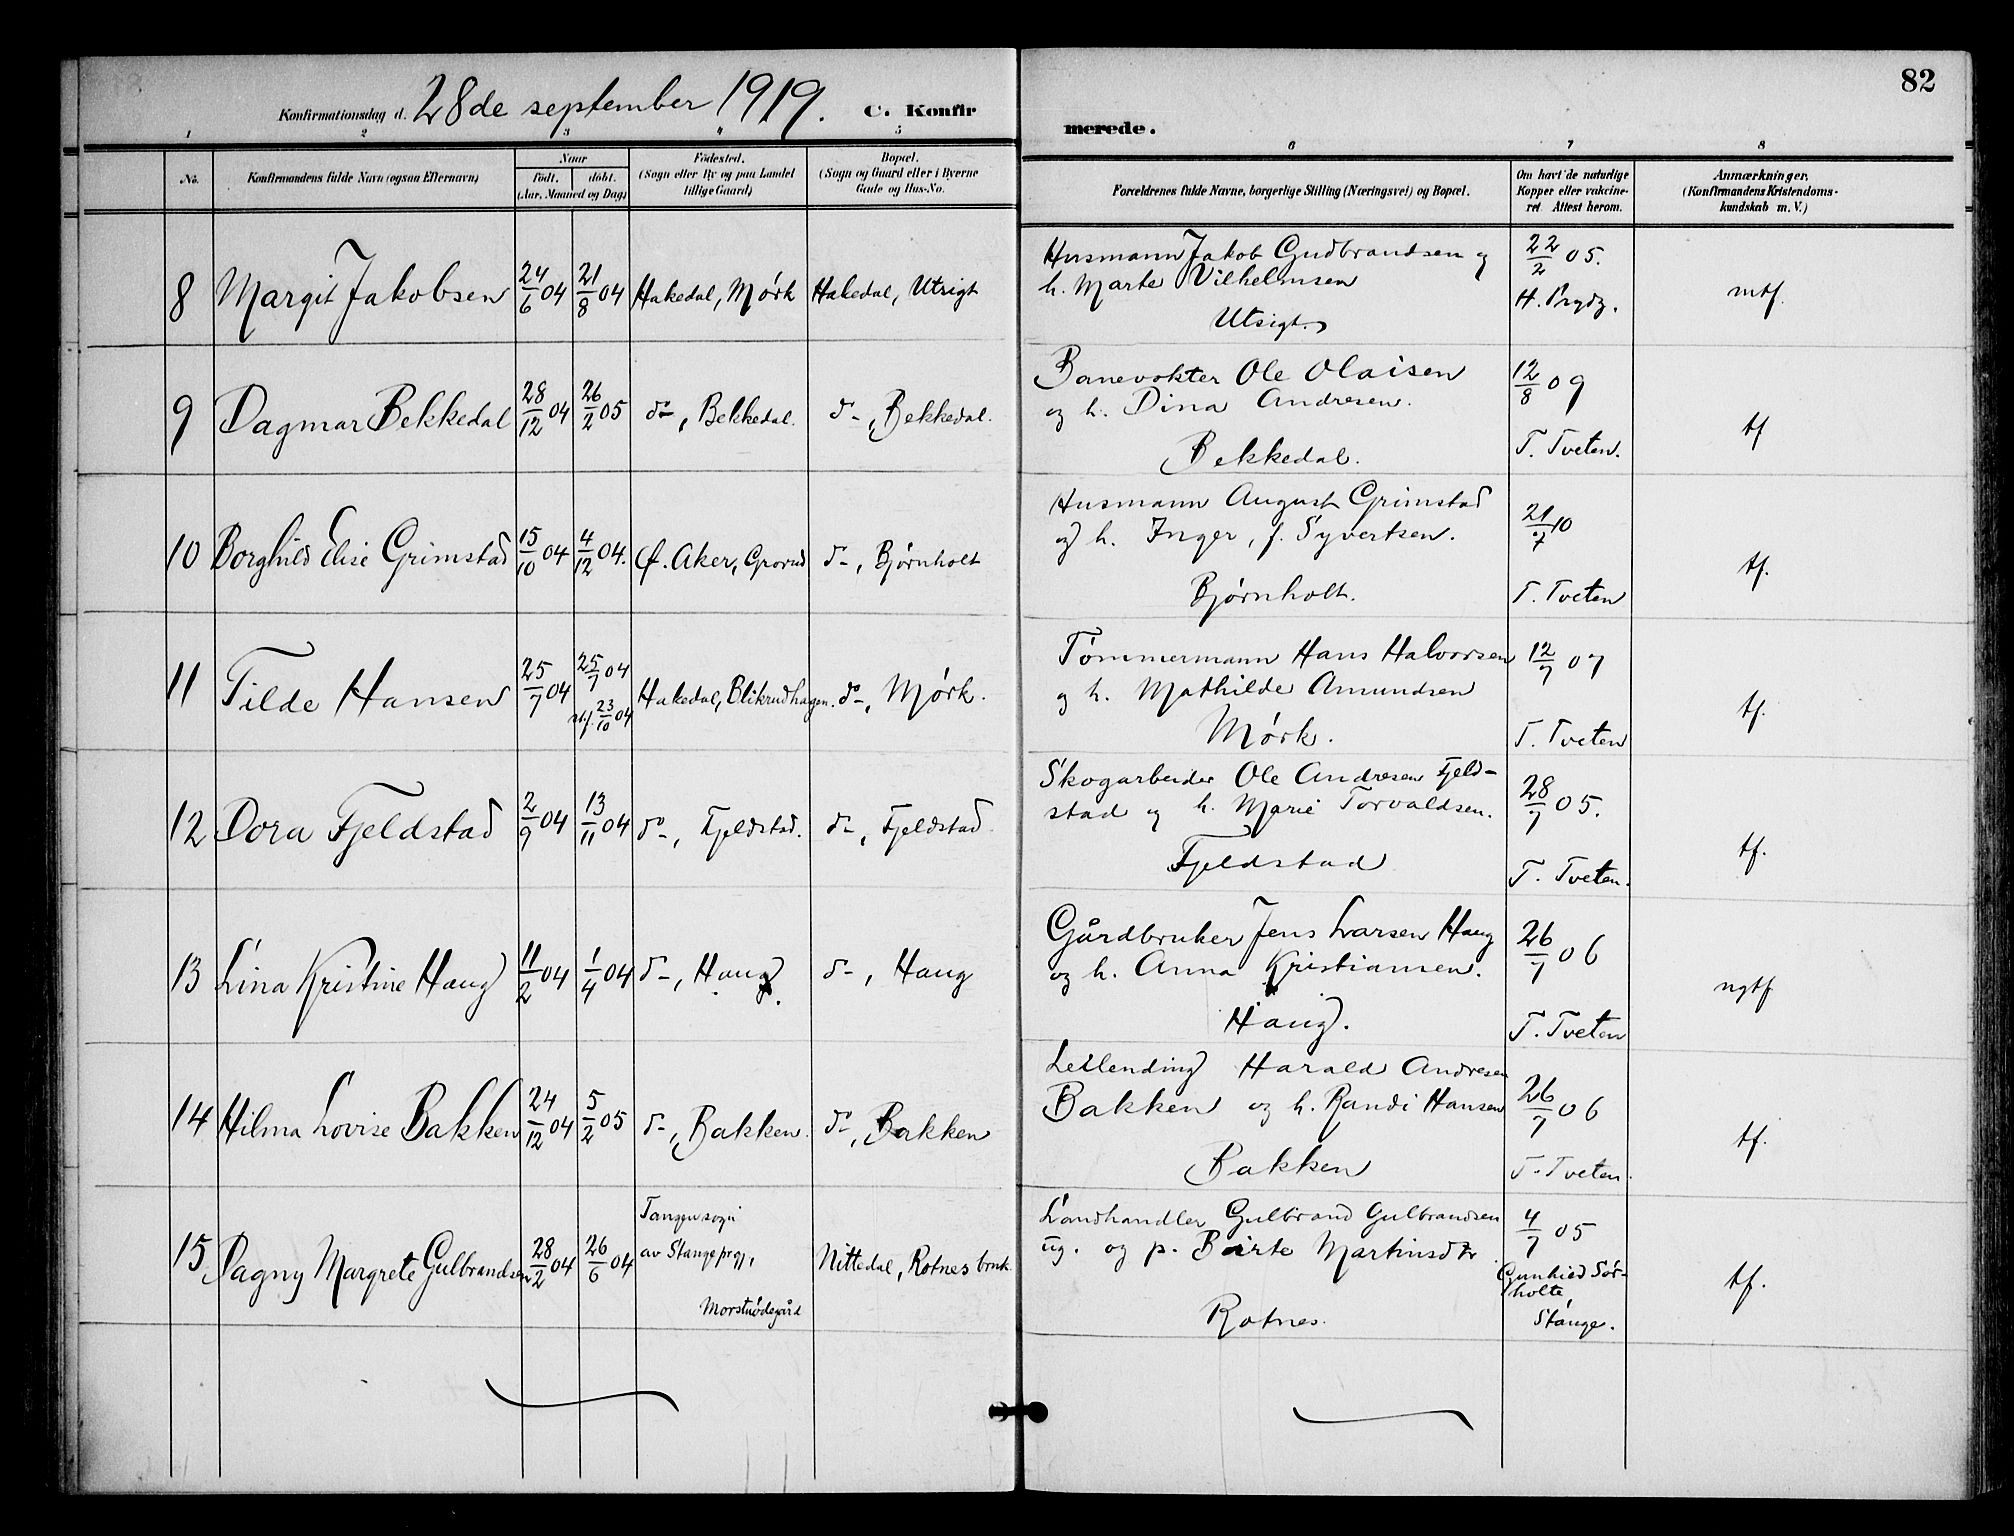 82
Konfirmationsdag d. 28de september 1919. C. Konfir
merede.
1 2 3 4 5
6 7 8
No. Konfirmandens fulde Navn (ogsaa Efternavn) Naar Födested. Bopæl.
födt. döbt. (Sogn eller By og paa Landet (Sogn og Gaard eller i Byerne
(Aar, Maaned og Dag) tillige Gaard) Gade og Hus-No.
Forældrenes fulde Navne, borgerlige Stilling (Næringsvei) og Bopæl. Om havt de naturlige Anmærkninger.
Kopper eller vakcine- (Konfirmandens Kristendoms-
ret. Attest herom. kundskab m. V.)
8 Margit Jakobsen 24/6 04 21/8 04 Hakedal, Mørk Hakedal, Utsigt
Husmann Jakob Gudbrandsen og 22/2 05.
h. Marte Vilhelmsen H. Prydz. mtf.
Utsigt.
9 Dagmar Bekkedal 28/12 04 26/2 05 do-, Bekkedal. do-, Bekkedal.
Banevokter Ole Olaisen 12/8 09
og h. Dina Andresen. tf
Bekkedal. T. Tveten.
10 Borghild Elise Grimstad 15/10 04 4/12 04. Ø. Aker, Grorud do-, Bjørnholt
Husmann August Grimstad 21/7 10
og h. Inger, f. Syvertsen. tf.
Bjørnholt. T. Tveten
11 Tilde Hansen 25/7 04 25/7 04 Hakedal, Blikrudhagen. do-, Mørk.
st.f. 23/10 04
Tømmermann Hans Halvorsen 12/7 07
og h. Mathilde Amundsen tf.
Mørk. T. Tveten
12 Dora Fjeldstad 2/9 04 13/11 04 do-, Fjeldstad. do-, Fjeldstad
Skogarbeider Ole Andresen Fjeld- 28/7 05.
stad og h. Marie Torvaldsen. tf.
Fjeldstad T. Tveten.
13 Lina Kristine Haug 11/2 04 1/4 04 do-, Haug. do-, Haug
Gårdbruker Jens Larsen Haug 26/7 06
og h. Anna Kristiansen. ngtf
Haug. T. Tveten
14 Hilma Lovise Bakken 24/12 04 5/2 05 do-, Bakken. do-, Bakken
Leilending Harald Andresen
Bakken og h. Randi Hansen 26/7 06
Bakken T. Tveten. tf.
15 Dagny Margrete Gulbrandsen 28/2 04 26/6 04 Tangen sogn
av Stange prgj., Nittedal, Rotnes bruk.
Morstuødegård
Landhandler Gulbrand Gulbrandsen 4/7 05
ug. og p. Berte Martinsdtr
Gunhild Sør-
holte, tf.
Rotnes. Stange.